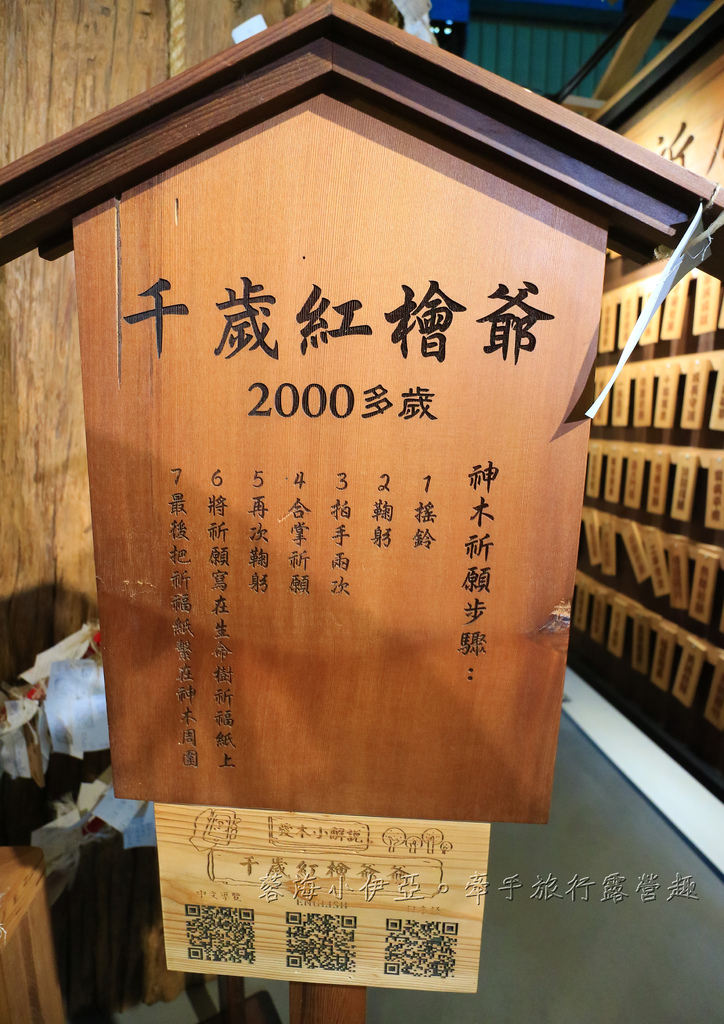 千歲紅檜爺
2000多歲
神木祈願步驟：
1搖鈴
2鞠躬
3拍手兩次
4合掌祈願
5再次鞠躬
6將祈願寫在生命樹祈福紙上
7最後把祈福紙繫在神木周圍
愛木小解說
千歲紅檜爺爺
中文導覽
ENGLISH
蓉海小伊亞。牽手旅行露營趣